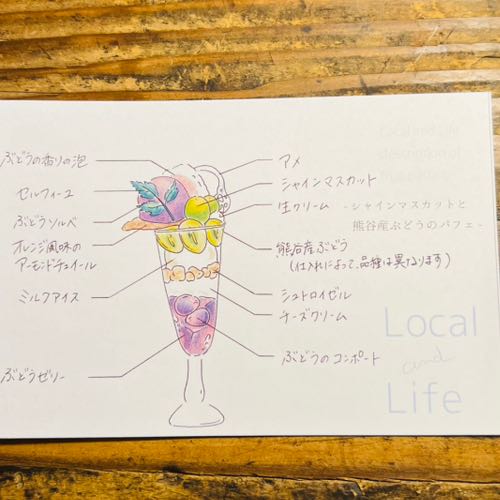 ぶどうの香りの泡
セルフィーユ
ぶどうソルベ
オレンジ風味の
アーモンドチュイール
ミルクアイス
ぶどうゼリー
アメ
シャインマスカット
生クリーム
熊谷産ぶどう
(仕入れによって、品種は異なります)
シュトロイゼル
チーズクリーム
ぶどうのコンポート
-シャインマスカットと
熊谷産ぶどうのパフェ-
Local
and
Life